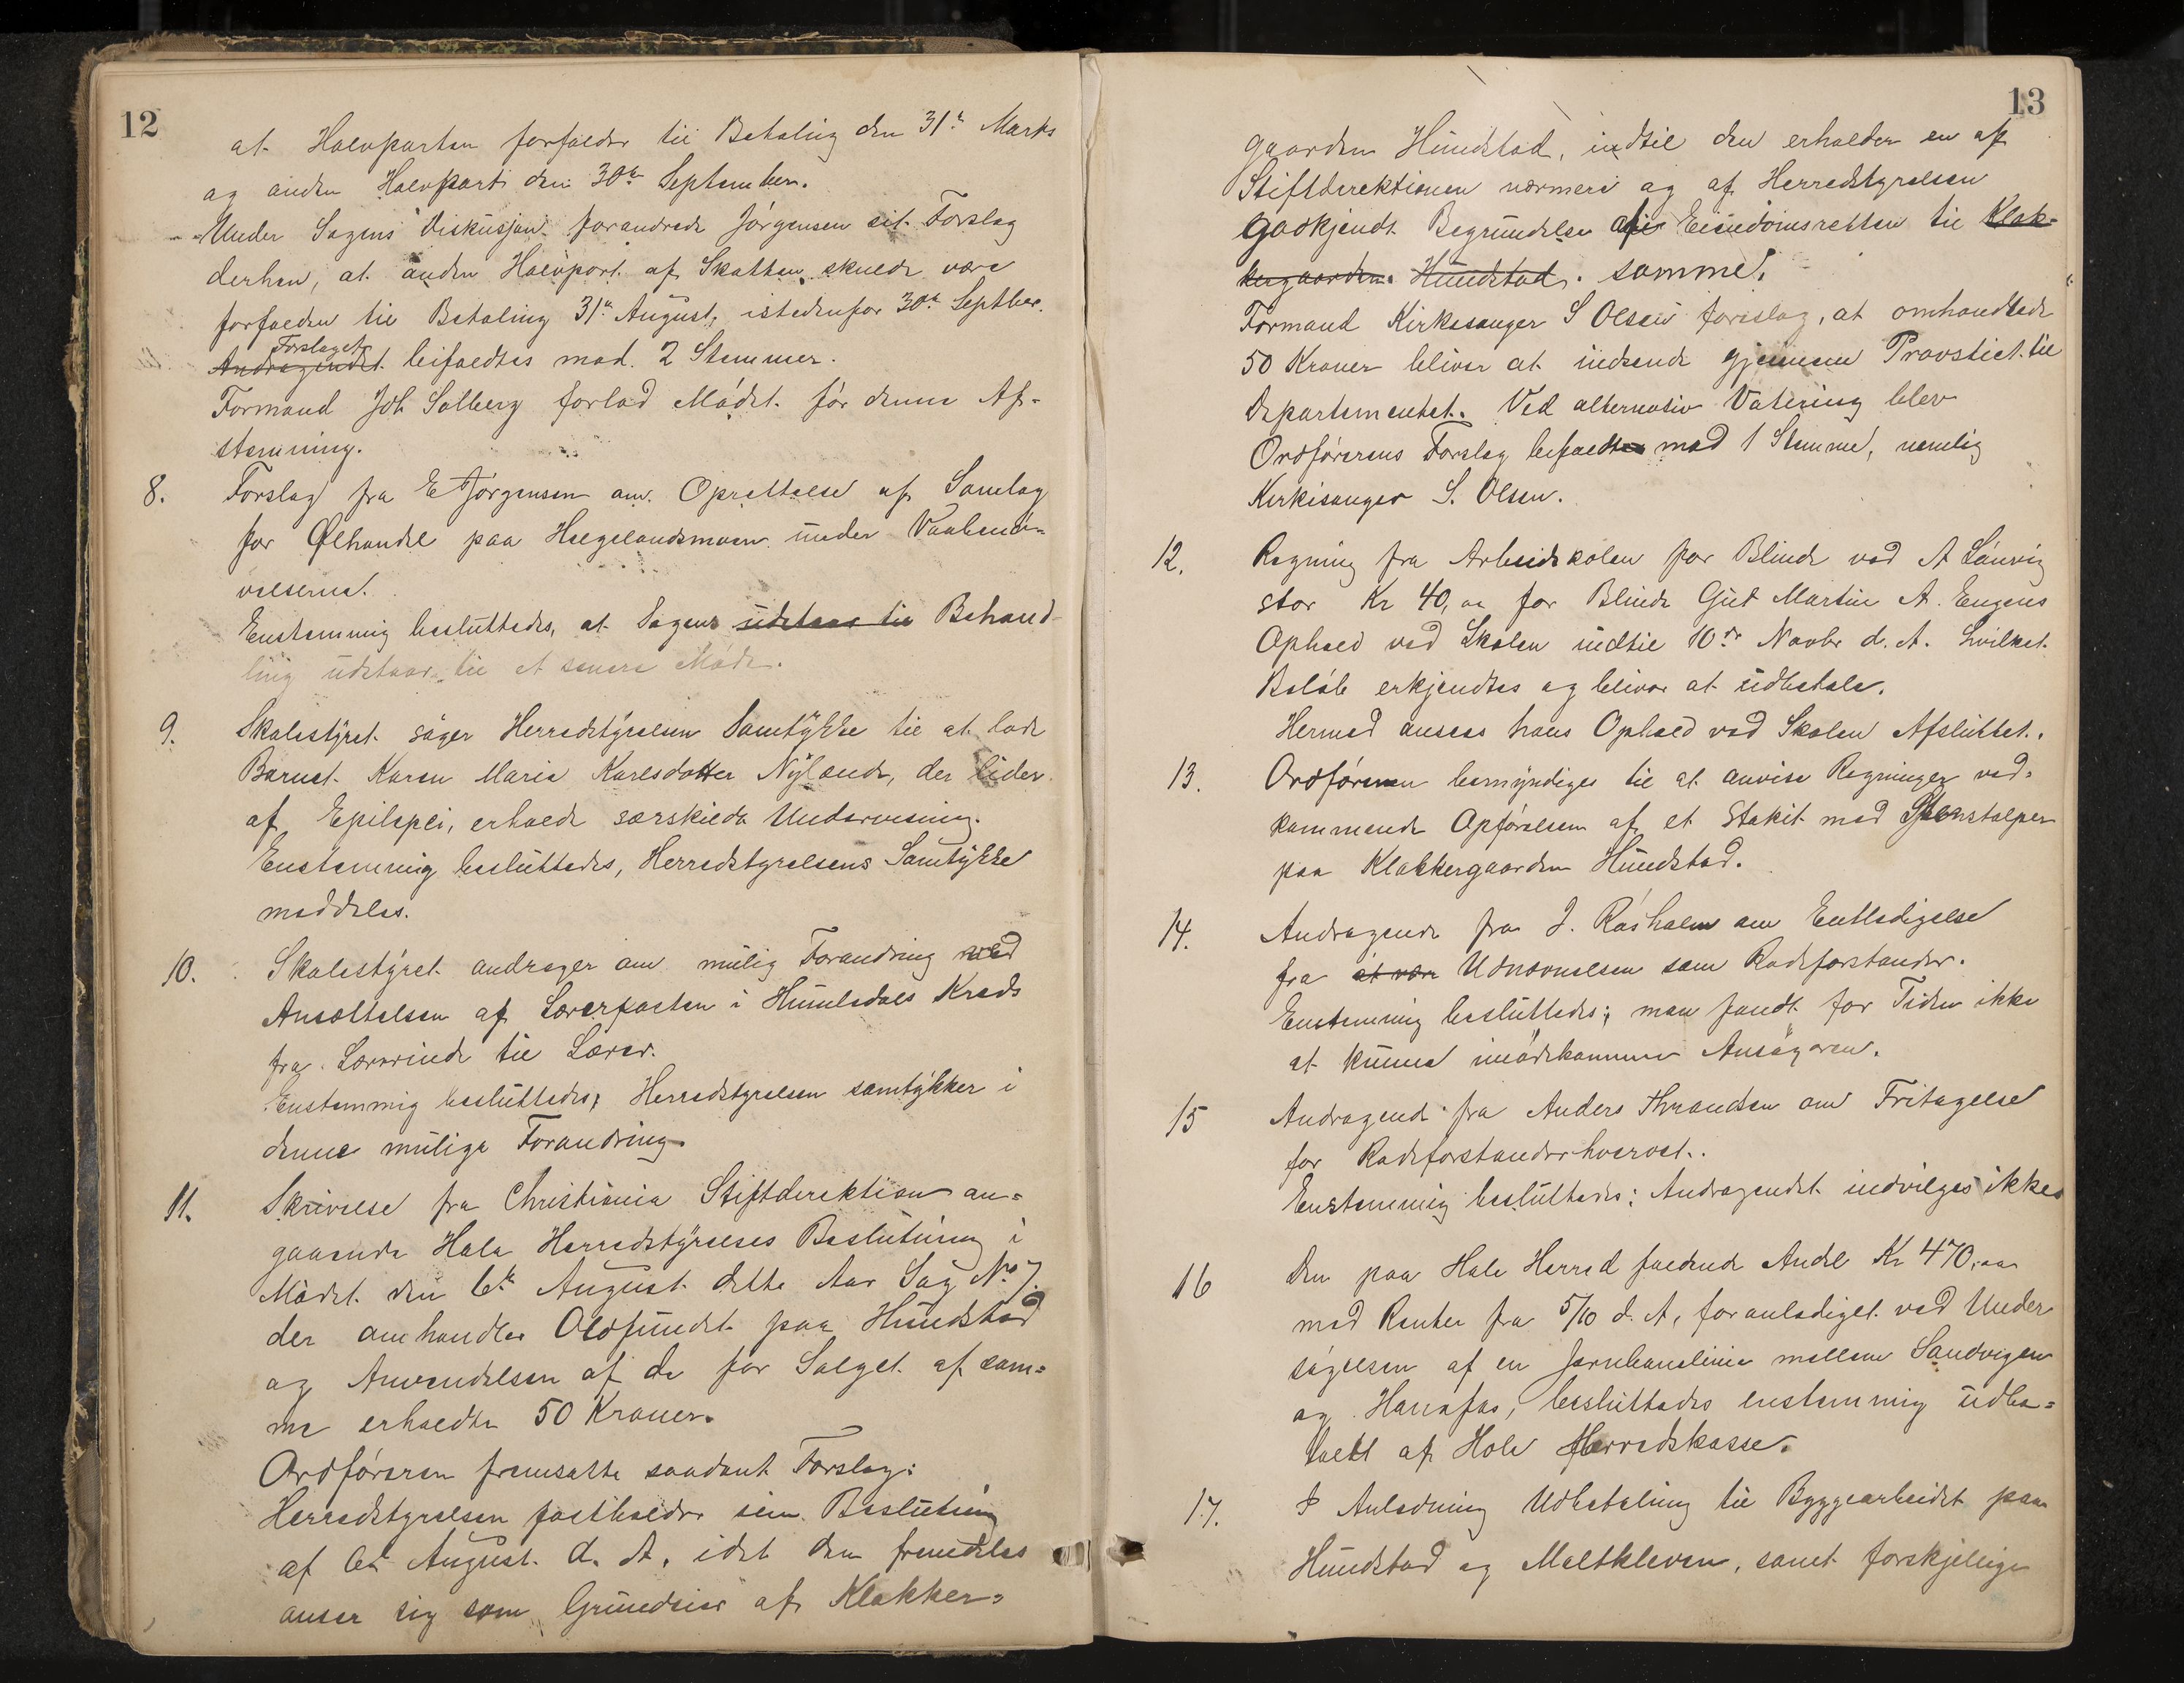 12
at Halvparten forfalder til Betaling den 31te Marts
og anden Halvpart den 30te September.
Under Sagens Diskusjon forandrede Jørgensen sit Forslag
derhen, at anden Halvport af Skatten skulde være
forfalden til Betaling 31te August, istedenfor 30te Septber.
Forslaget
Andragendet bifaldtes mod 2 Stemmer.
Formand Joh Solberg forlod Mødet før denne Af-
stemning.
8. Forslag fra E Jørgensen om Oprettelse af Samlag
for Ølhandel paa Helgelandsmoen under Vaabenø-
velserne.
Enstemmig besluttedes, at Sagens udstaar til Behand-
ling udstaar til et senere Møde.
9. Skolestyret søger Herredstyrelsens Samtykke til at lade
Barnet Karen Marie Karlsdatter Nylænde, der lider
af Epilepsi, erholde særskildt Undervisning.
Enstemmig besluttedes, Herredstyrelsens Samtykke
meddeles.
10. Skolestyret andrager om mulig Forandring ved
Ansættelsen af Lærerposten i Humledals Kreds
fra Lærerinde til Lærer.
Enstemmig besluttedes, Herredstyrelsen samtykker i
denne mulige Forandring.
11. Skrivelse fra Christiania Stiftdirektion an=
gaaende Hole Herredstyrelses Beslutning i
Mødet den 6te August dette Aar Sag No 7.
der omhandler Oldfundet paa Hundstad
og Anvendelsen af de for Salget af sam=
me erholdte 50 Kroner.
Ordføreren fremsatte saadant Forslag:
Herredstyrelsen fastholder sin Beslutning
af 6te August d. A. idet den fremdeles
anser sig som Grundeier af Klokker=
13
gaarden Hundstad, indtil den erholder en af
Stiftdirektionen nærmere og af Herredstyrelsen
godkjendt Begrundelse af Eiendomsretten til Klok=
kergaarden Hundstad. samme.
Formand Kirkesanger S Olsen foreslog, at omhandlede
50 Kroner bliver at indsende gjennem Provstiet til
Departementet. Ved alternativ Votering blev
Ordførerens Forslag bifaldt mod 1 Stemme, nemlig
Kirkesanger S. Olsen.
12. Regning fra Arbeidskolen for Blinde ved A Lanvig
stor Kr 40,00 for Blinde Gut Martin A. Engens
Ophold ved Skolen indtil 10de Novbr d. A. hvilket
Beløb erkjendtes og bliver at udbetale.
Hermed ansees hans Ophold ved Skolen Afsluttet.
13. Ordføreren bemyndiges til at anvise Regninger ved=
kommende Opførelsen af et Stakit med Stenstolper
paa Klokkergaarden Hundstad.
14. Andragende fra J. Røsholm om Entledigelse
fra at være Udnævnelsen som Rodeforstander.
Enstemmig besluttedes; man fandt for Tiden ikke
at kunne imødekomme Ansøgeren.
15 Andragende fra Anders Thrandsen om Fritagelse
for Rodeforstanderhvervet.
Enstemmig besluttedes: Andragendet indvilges ikke
16 Den paa Hole Herred faldende Andel Kr 470,00
med Renter fra 5/10 d. A, foranlediget ved Under
søgelsen af en Jernbanelinie mellem Sandvigen
og Hønefos, besluttedes enstemmig udbe=
talt af Hole Herredskasse.
17. I Anledning Udbetaling til Byggearbeidet paa
Hundstad og Meltkleven, samt forskjellige